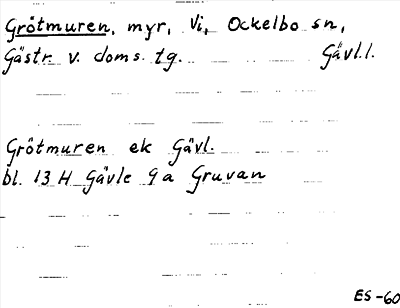 Grötmuren, myr, Vi, Ockelbo sn,
Gästr. v. doms. tg. Gävl.l.
Grötmuren ek Gävl.
bl. 13 H Gävle 9a Gruvan
ES-60